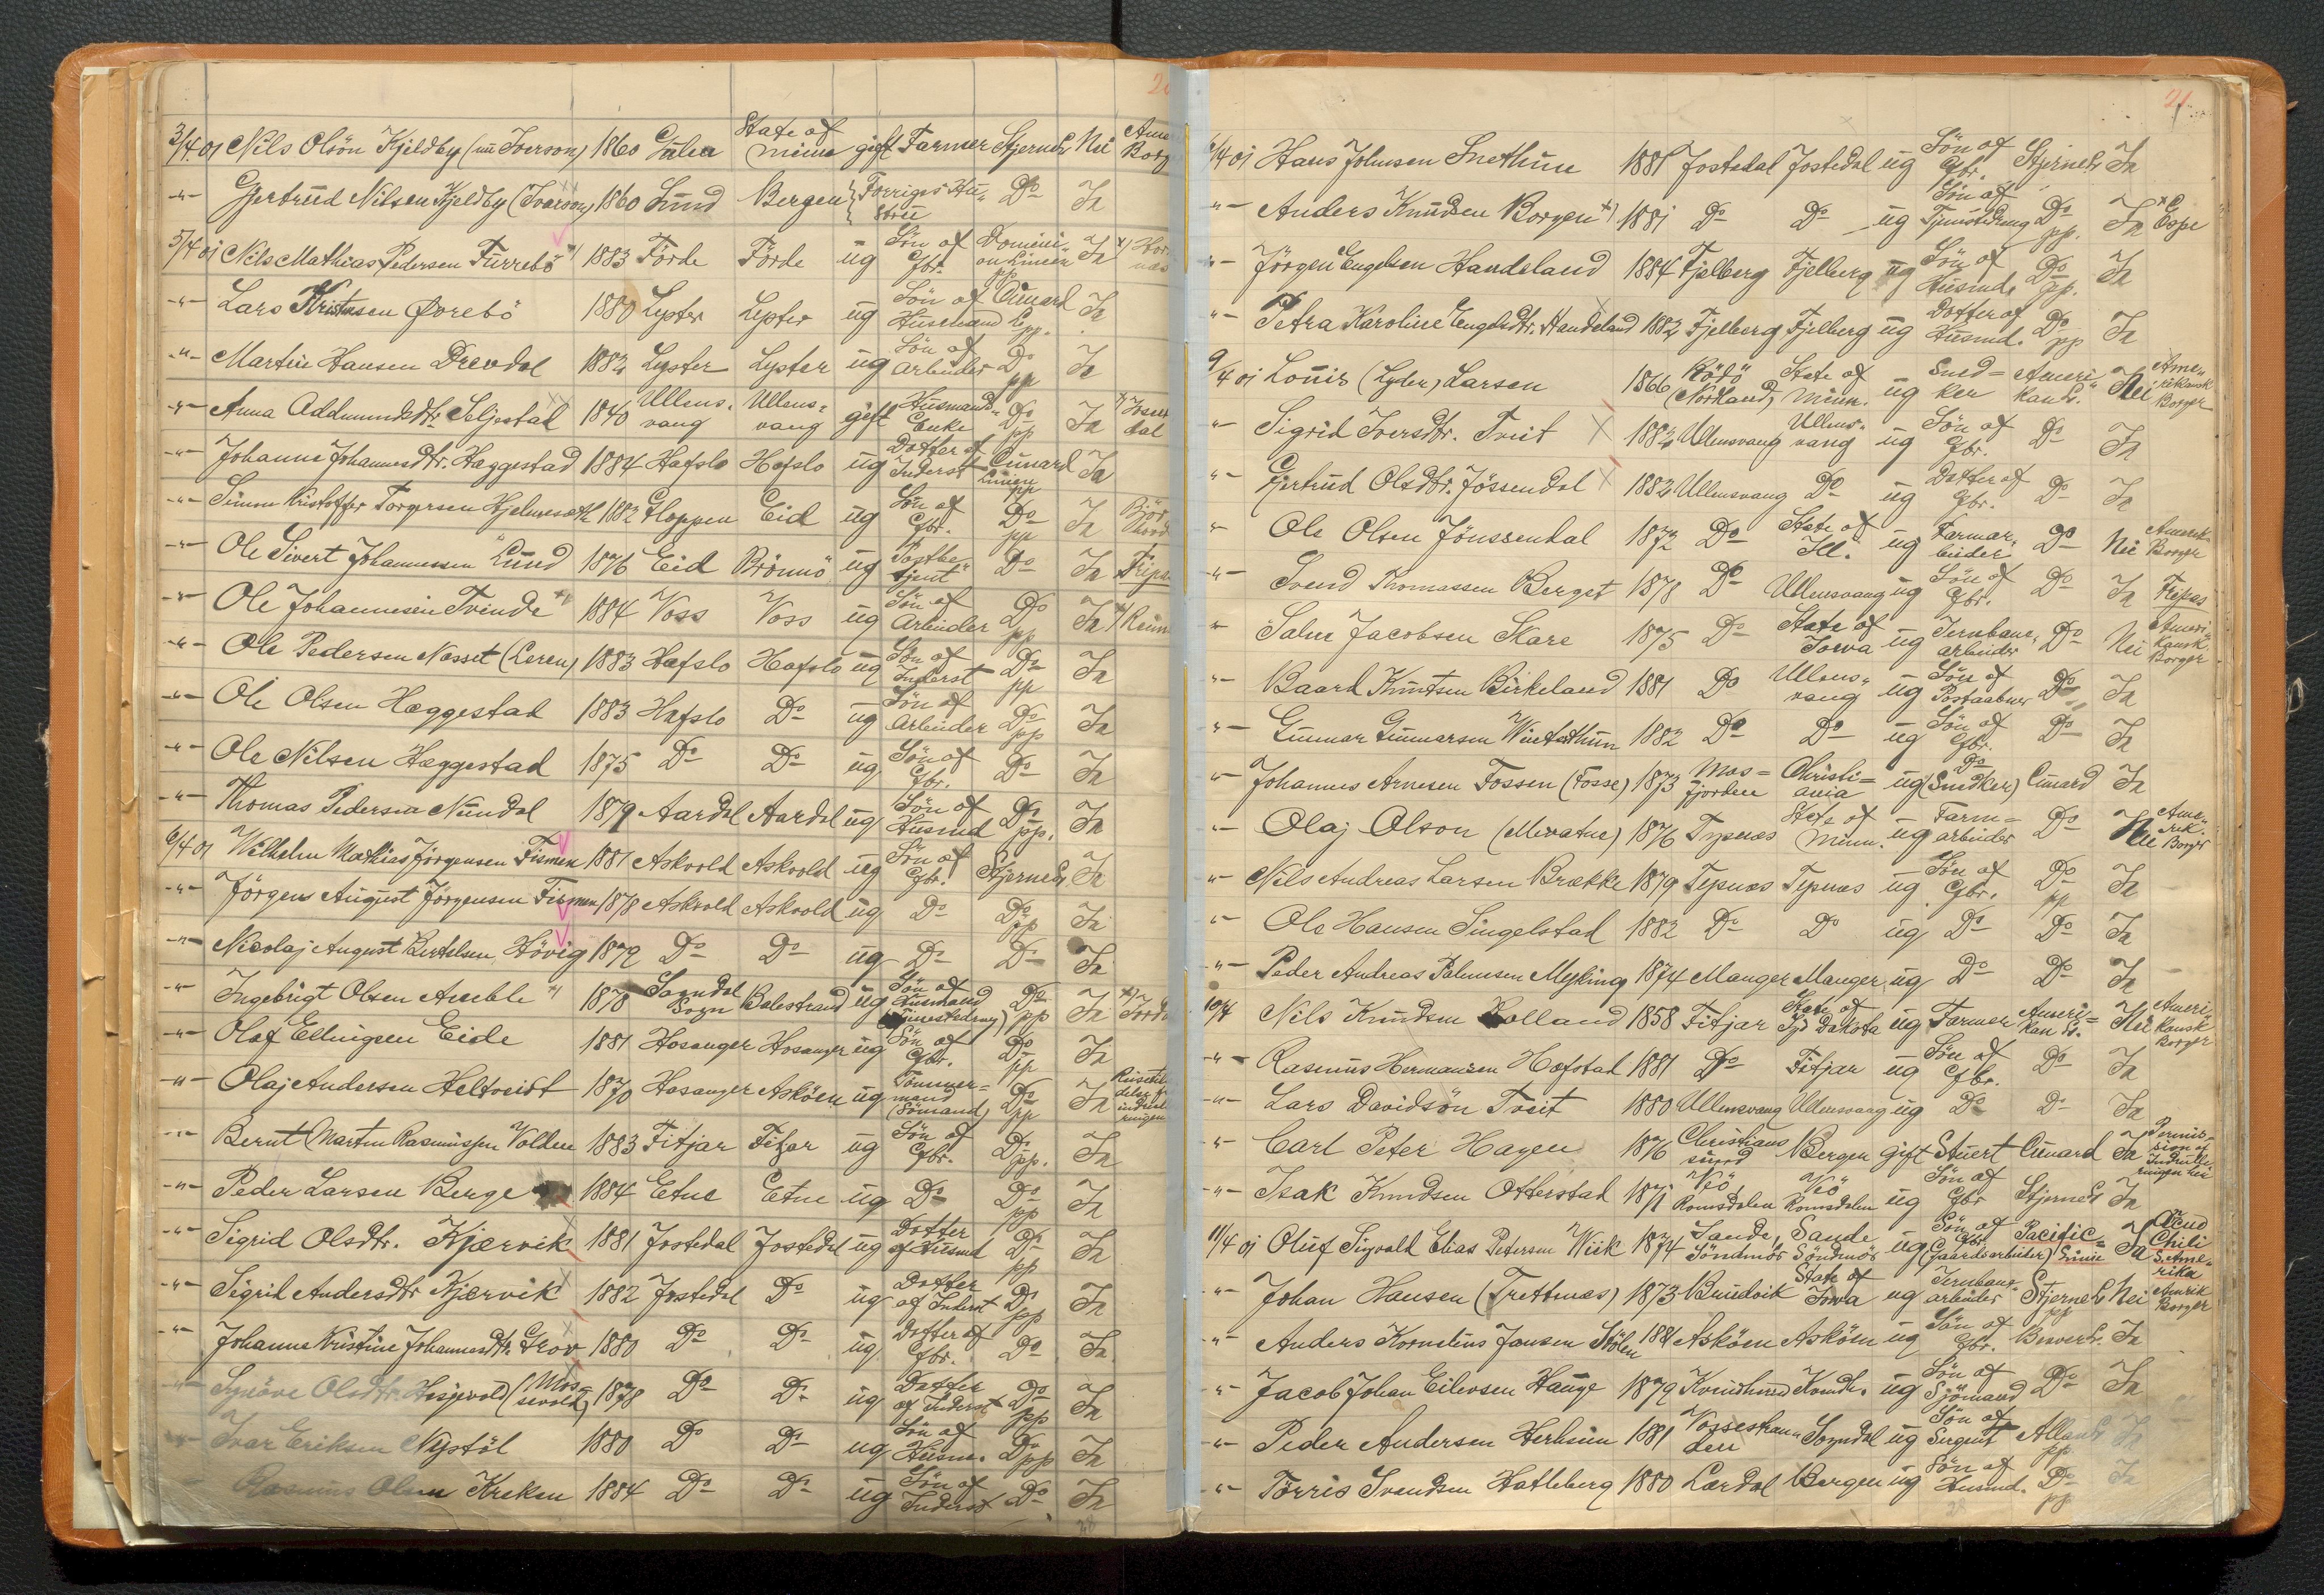 3/4 01 Nils Olsön Kjeldby (nu Iverson) 1860 State of Minn gift Farmer Stjernel. Nei
-"- Gjertrud Nilsen Kjeldby (Iverson) 1860 Lund Bergen Forriges Hustru Do Ja
5/4 01 Nils Mathias Pedersen Furrebö 1883 Förde Förde ug Sön af Gbr. Dominion Linien pp Ja
-"- Lars Kristensen Øvrebö 1880 Lyster Lyster ug Sön af Husmand Cunard L. pp. Ja
-"- Martin Hansen Drevdal 1882 Lyster Lyster ug Sön af Arbeider Do pp Ja
-"- Anna Addmundsdtr. Seljestad 1840 Ullensvang Ullensvang gift Husmands Enke Do pp Ja
-"- Johanne Johannesdtr. Haggestad 1884 Hafslo Hafslo ug Dotter af Inderst Cunard Linien pp Ja
-"- Simon Kristoffer Torgersen Hjelmeseth 1882 Gloppen Eid ug Sön af Gbr. Do pp Ja
-"- Ole Sivert Johannessen Lund 1876 Eid Brönnö ug Postbetjent Do Ja Fripas
-"- Ole Johannesen Tvinde 1884 Voss Voss ug Sön af Arbeider Do pp Ja
-"- Ole Pedersen Næsset (Leren) 1883 Hafslo Hafslo ug Sön af Inderst Do pp Ja
-"- Ole Olsen Hæggestad 1883 Hafslo Do ug Sön af Arbeider Do pp Ja
-"- Ole Nilsen Hæggestad 1875 Do Do ug Sön af Gbr. Do Ja
-"- Thomas Pedersen Nundal 1879 Aardal Aardal ug Sön af Husmd Do pp. Ja
6/4 01 Wilhelm Mathias Jörgensen Fismen 1881 Askvold Askvold ug Sön af Gbr. Stjernel. Ja
-"- Jörgen August Jörgensen Fismen 1878 Askvold Askvold ug Do Do pp Ja
-"- Nicolaj August Bertelsen Hövig 1879 Do Do ug Do Do Ja
-"- Ingebrigt Olsen Amble 1878 Sogndal Sogn Balestrand ug Sön af Husmand (Tjenestedreng) Do pp Ja
-"- Olaf Ellingsen Eide 1881 Hosanger Hosanger ug Sön af Gbr. Do pp Ja
-"- Olaj Andersen Heltveidt 1870 Hosanger Asköen ug Tömmermand (Sömand) Do pp Ja
-"- Bernt Martin Rasmussen Volden 1883 Fitjar Fitjar ug Sön af Gbr. Do pp. Ja
-"- Peder Larsen Berge 1884 Etne Etne ug Do Do pp Ja
-"- Sigrid Olsdtr. Kjærvik 1881 Jostedal Jostedal ug Dotter af Husmd Do pp Ja
-"- Sigrid Andersdtr Kjærvik 1882 Jostedal Do ug Dotter af Inderst Do pp Ja
-"- Johanne Kristine Johannesdtr. Grov 1880 Do Do ug Dotter af Gbr. Do Ja
-"- Synöve Olsdtr. 1878 Do Do ug Dotter af Inderst Do pp Ja
-"- Ivar Eriksen Nystöl 1880 Do Do ug Sön af Husm. Do pp Ja
Rasmus Olsen Kreken 1884 Do Do ug Sön af Inderst Do Ja
28
21
6/4 01 Hans Johnsen Snethun 1881 Jostedal Jostedal ug Sön af Gbr. Stjernel. Ja
"- Anders Knudsen Borgen x) 1881 Do Do ug Sön af Tjenestedreng Do pp. Ja
"- Jörgen Engelsen Handeland 1884 Fjelberg Fjelberg ug Sön af Husmd. Do pp. Ja
"- Petra Karoline Engelsdtr. Handeland 1882 Fjelberg Fjelberg ug Dotter af Husmd. Do pp Ja
9/4 01 Louis (Lyder) Larsen 1866 Rödö (Nordland) State of Minn. ug Snedker Amerikansk. Nei Amerikansk Borger
"- Sigrid Iversdtr. Tveit 1882 Ullensvang Ullensvang ug Sön af Gbr. Do Ja
"- Gjertrud Olsdtr. Jössendal 1882 Ullensvang Do ug Dotter af Gbr. Do Ja
"- Ole Olsen Jönssendal 1872 Do State of Ill. ug Farmarbeider Do Nei Amerik. Borger
"- Svend Thomassen Berget 1878 Do Ullensvang ug Sön af Gbr. Do Ja Fripas
"- Salve Jacobsen Skare 1875 Do State of Iowa ug Jernbanearbeider Do Nei Amerikansk Borger
"- Baard Knutsen Birkeland 1881 Do Ullensvang ug Sön af Postaabner Do Ja
"- Gunnar Gunnarsen Winterthun 1882 Do Do ug Sön af Gbr. Do Ja
"- Johannes Arnesen Fossen (Fosse) 1873 Masfjorden Christiania ug Do (Snedker) Cunard Ja
"- Olaj Olson (Mevatne) 1876 Tysnæs State of Minn. ug Farmarbeider Do Nei Amerik. Borger
"- Nils Andreas Larsen Brække 1879 Tysnæs Tysnæs ug Sön af Gbr. Do pp Ja
"- Ole Hansen Singelstad 1882 Do Do ug Do Do Ja
"- Peder Andreas Palmesen Myking 1874 Manger Manger ug Do Do Ja
10/4 Nils Knudsen Holland 1858 Fitjar State of Syd Dakota ug Farmer Amerikansk. Nei Amerikansk Borger
-"- Rasmus Hermansen Hofstad 1881 Do Fitjar ug Sön af Gbr. Do Ja
-"- Lars Davidsön Tveit 1880 Ullensvang Ullensvang ug Do Do Ja
-"- Carl Peter Hagen 1876 Christianssund Bergen gift Stuert Cunard Ja Permission af Indrulleringen
-"- Isak Knudsen Otterstad 1871 Romsdalen Romsdalen ug Sön af Gbr Stjernel Ja
11/4 01 Oluf Sigvald Elias Petersen Wiik 1874 Sande, Söndmör Sande Söndmör ug Sön af Gbr (Gaardsarbeider) Pacific Linie Ja Chili S. Amerika
"- Johan Hansen (Trettenæs) 1873 Bruvik State of Iowa ug Jernbanearbeider Stjernel. pp Nei Amerik Borger
-"- Anders Kornelius Jansen Stölen 1881 Asköen Asköen ug Sön af Gbr. Ja
-"- Jacob Johan Eilevsen Hauge 1879 Kvindherred Kvindh. ug Sön af Sjömand Do Ja
-"- Peder Andersen Herheim 1881 Vossestranden Sogndal ug Sön af Sergent Allanl. pp Ja
-"- Törris Svendsen Hatleberg 1880 Lærdal Bergen ug Sön af Husmd. Do pp Ja
28